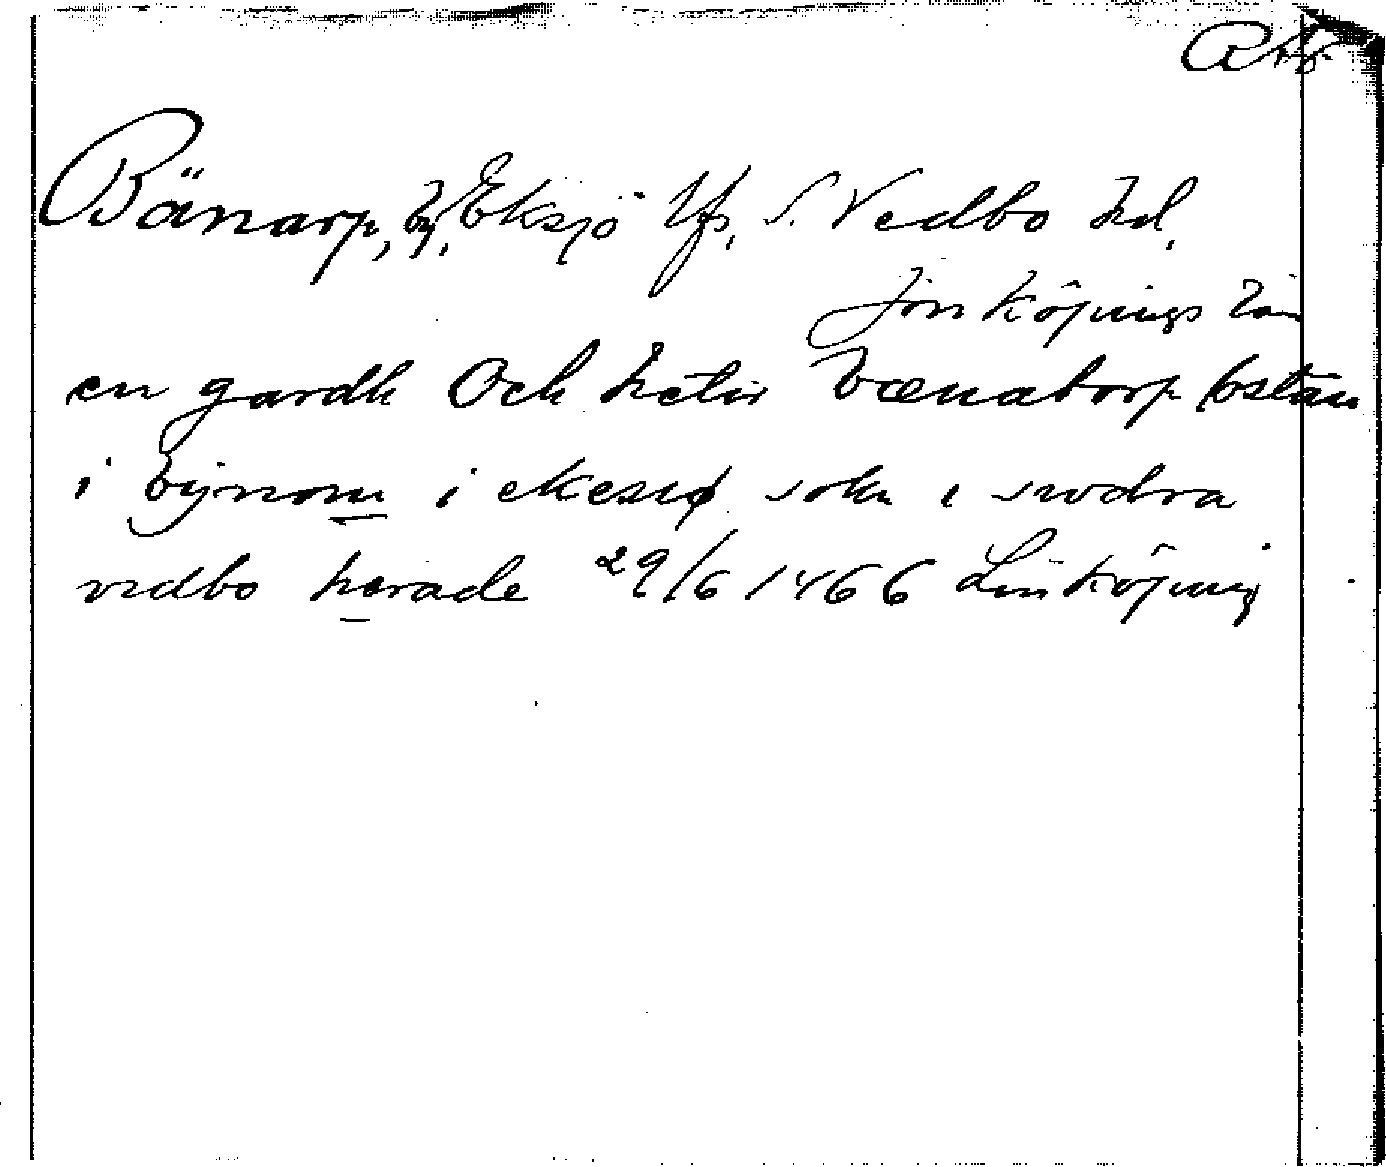 RAp
Bänarp, by, Eksjö lfs, S. Vedbo hd,
Jönköpings län
en gardh Och hetir bænatorp østan
i bynom i ekesiø sokn i swdra
vedbo hærade 29/6 1466 Linköping